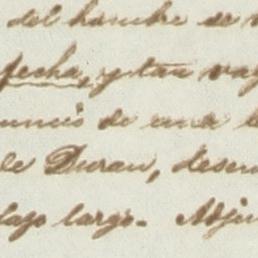 del hombre se
fecha, y tan vag
nuncio de una l
de Duran, desem
lazo largo. Adjun